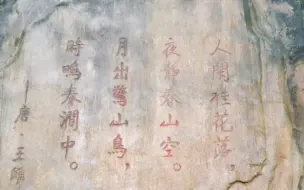 人閒桂花落，
夜靜春山空。
月出驚山鳥，
時鳴春澗中。
唐·王維